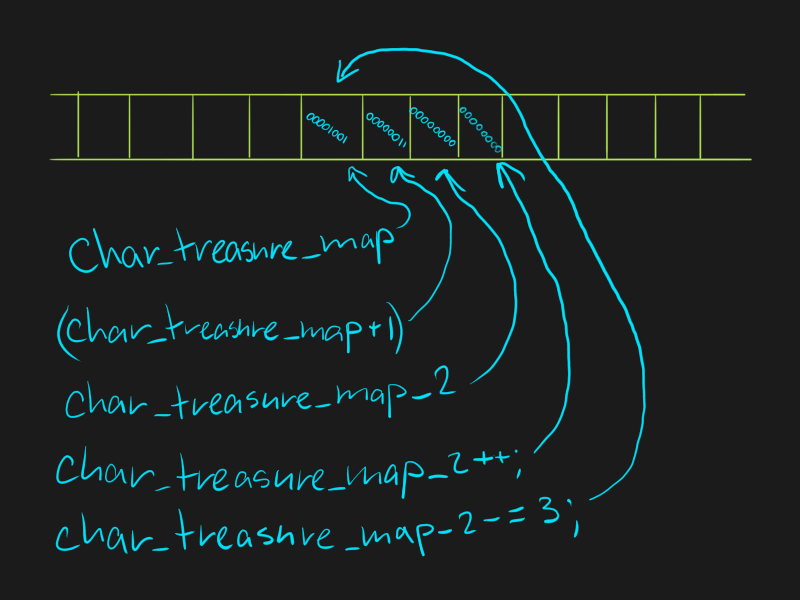 00001001 00000011 00000000 00000000
char_treasure_map
(char_treasure_map+1)
char_treasure_map_2
char_treasure_map_2++;
char_treasure_map_2-=3;